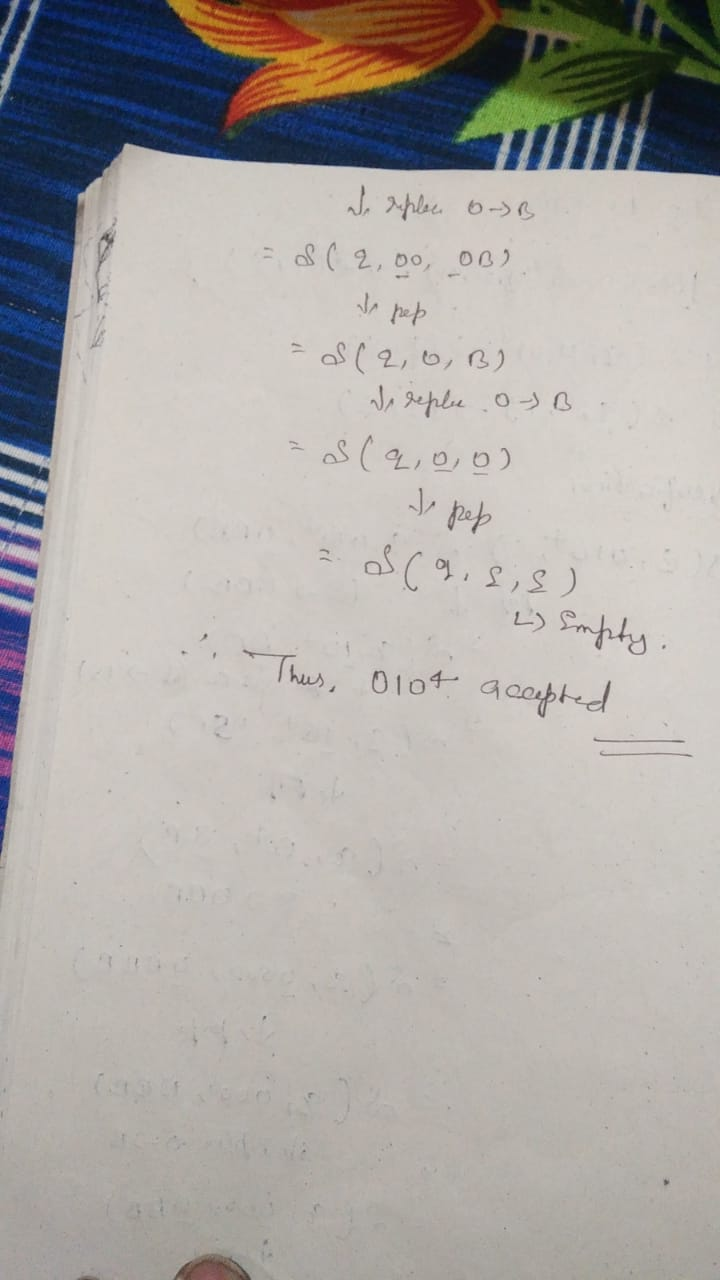 ↓ replace 0→B
= δ(q, 00, 0B)
↓ pop
= δ(q, 0, B)
↓ replace 0→B
= δ(q, 0, 0)
↓ pop
= δ(q, ε, ε)
↳ Empty.
∴ Thus, 010⁴ accepted